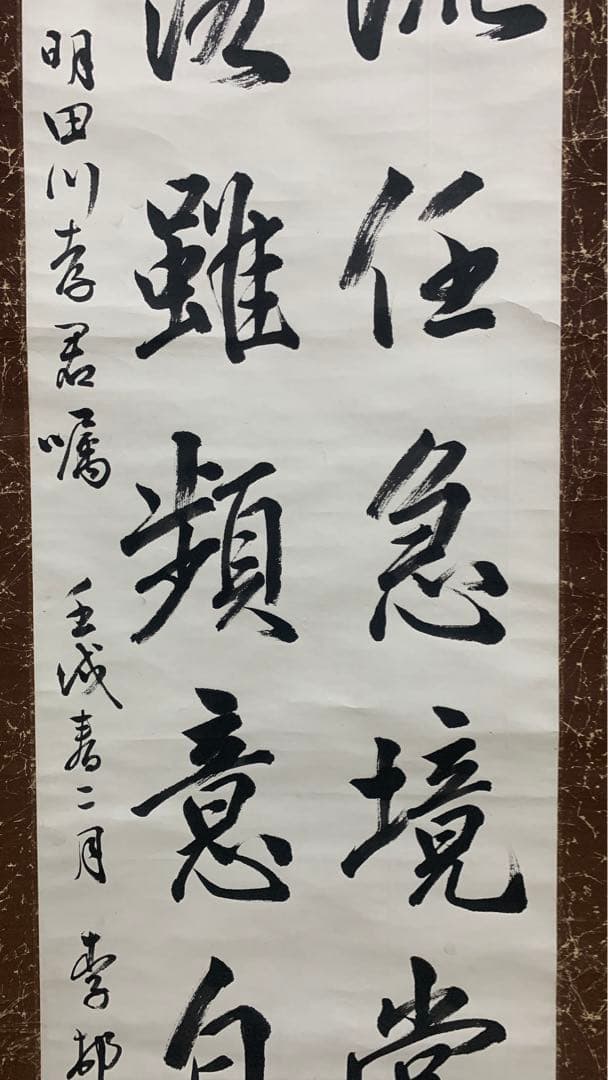 流任急境常
落雖頻意自
明田川孝君嘱 壬戌春二月 李都